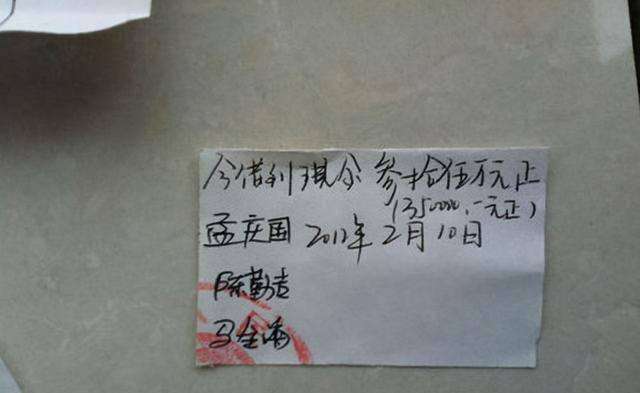 今借到琪尔 参拾伍万元正
(350000.-元正)
孟庆国 2012年 2月 10日
陈勤吉
马全